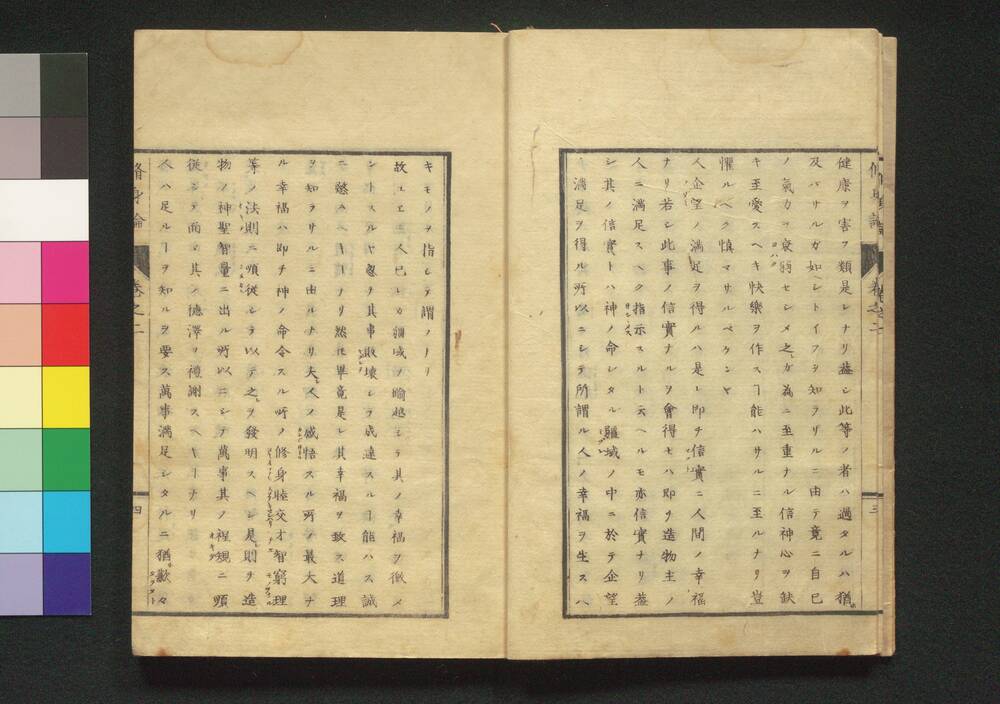 健康ヲ害フ類是レナリ蓋シ此等ノ者ハ過タルハ猶
及バサルガ如シトイフヿヲ知ラザルニ由テ竟ニ自己
ノ氣力ヲ衰弱セシメ之ガ為ニ至重ナル信神心ヲ缺
キ至愛スヘキ快樂ヲ作スヿ能ハサルニ至ルナリ豈
懼ルヘク慎マサルベケンヤ
人企望ノ満足ヲ得ルハ是レ即チ信實ニ人間ノ幸福
ナリ若シ此事ノ信實ナルヲ會得セハ即チ造物主ノ
人ニ満足スヘク指示スルト云ヘルモ亦信實ナリ蓋
シ其ノ信實トハ神ノ命シタル疆域ノ中ニ於テ企望
ノ満足ヲ得ル所以ニシテ所謂ル人ノ幸福ヲ生スヘ
脩身論 卷之二 三
キモノヲ指シテ謂ノミ
故ニ人已レカ疆域ヲ踰越シテ其ノ幸福ヲ徼メ
ントスルヤ忽チ其事敗壞シテ成達スルヿ能ハス誠
ニ愍ムヘキヿナリ然レ𪜈畢竟是レ其幸福ヲ致ス道理
ヲ知ラサルニ由ルナリ夫レ人ノ感悟スル所ノ最大ナ
ル幸福ハ即チ神ノ命令スル所ノ修身睦交才智窮理
等ノ法則ニ順從シテ以テ之ヲ發明スヘシ是則チ造
物ノ神聖智量ニ出ル所以ニシテ萬事其ノ裡規ニ順
從シテ而シテ其ノ德澤ヲ禮謝スヘキヿナリ
人ハ足ルヿヲ知ルヲ要ス萬事満足シタルニ猶歎々
脩身論 卷之二 四